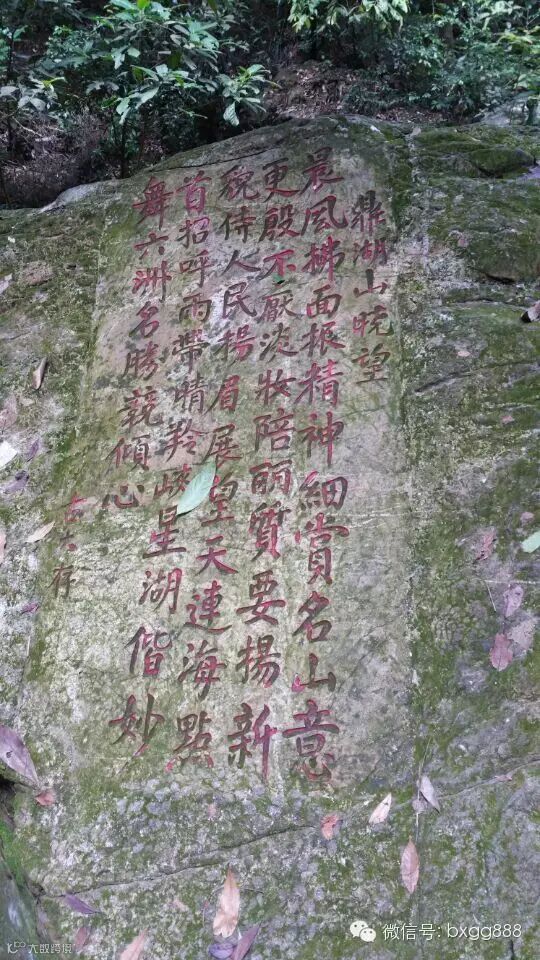 鼎湖山晓望
晨風拂面振精神細賞名山意
更殷不厭淡妝陪丽質要揚新
貌侍人民楊眉展望天連海點
首招呼雨帶晴羚峡星湖偕妙
舞六洲名勝競傾心
古大存
微信号: bxgg888
大数跨境